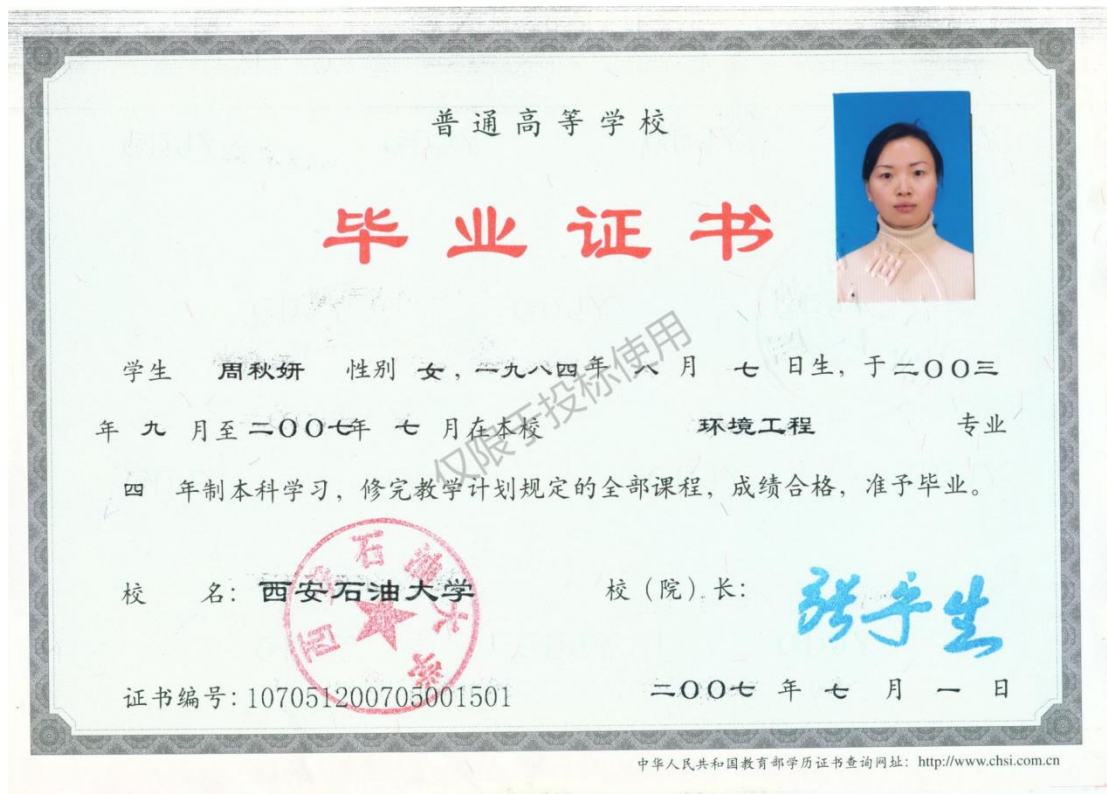 普通高等学校
毕业证书
学生 周秋妍 性别 女，一九八四年 六 月 七 日生，于二〇〇三
年 九 月至二〇〇七年 七 月在本校 环境工程 专业
四 年制本科学习，修完教学计划规定的全部课程，成绩合格，准予毕业。
仅限于投标使用
校 名：西安石油大学 校（院）长：
西安石油大学
证书编号：107051200705001501 二〇〇七 年 七 月 一 日
中华人民共和国教育部学历证书查询网址：http://www.chsi.com.cn